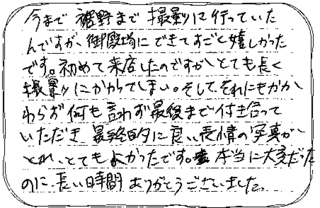 今まで裾野まで撮影に行っていた
んですが、御殿場にできてすごく嬉しかった
です。初めて来店したのですが、とても長く
撮影にかかってしまい。そして、それにもかか
わらず何も言わず最後まで付き合って
いただき 最終的に良い表情の写真が
とれ、とてもよかったです。本当に大変だった
のに、長い時間ありがとうございました。